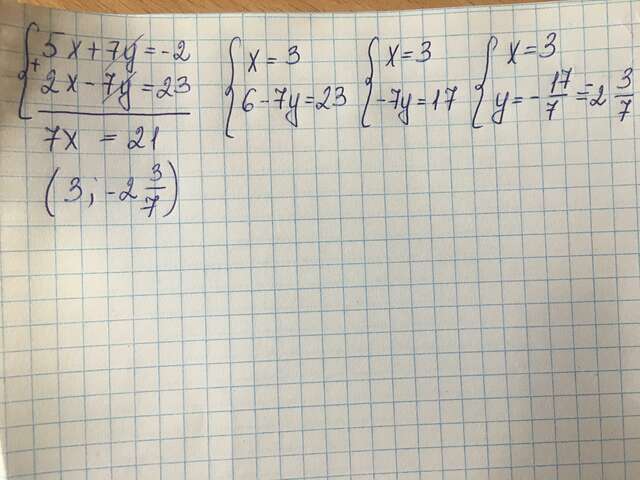 { 5x+7y=-2
+ 2x-7y=23
7x = 21
(3; -2 3/7)
{ x=3
6-7y=23
{ x=3
-7y=17
{ x=3
y=-17/7=-2 3/7